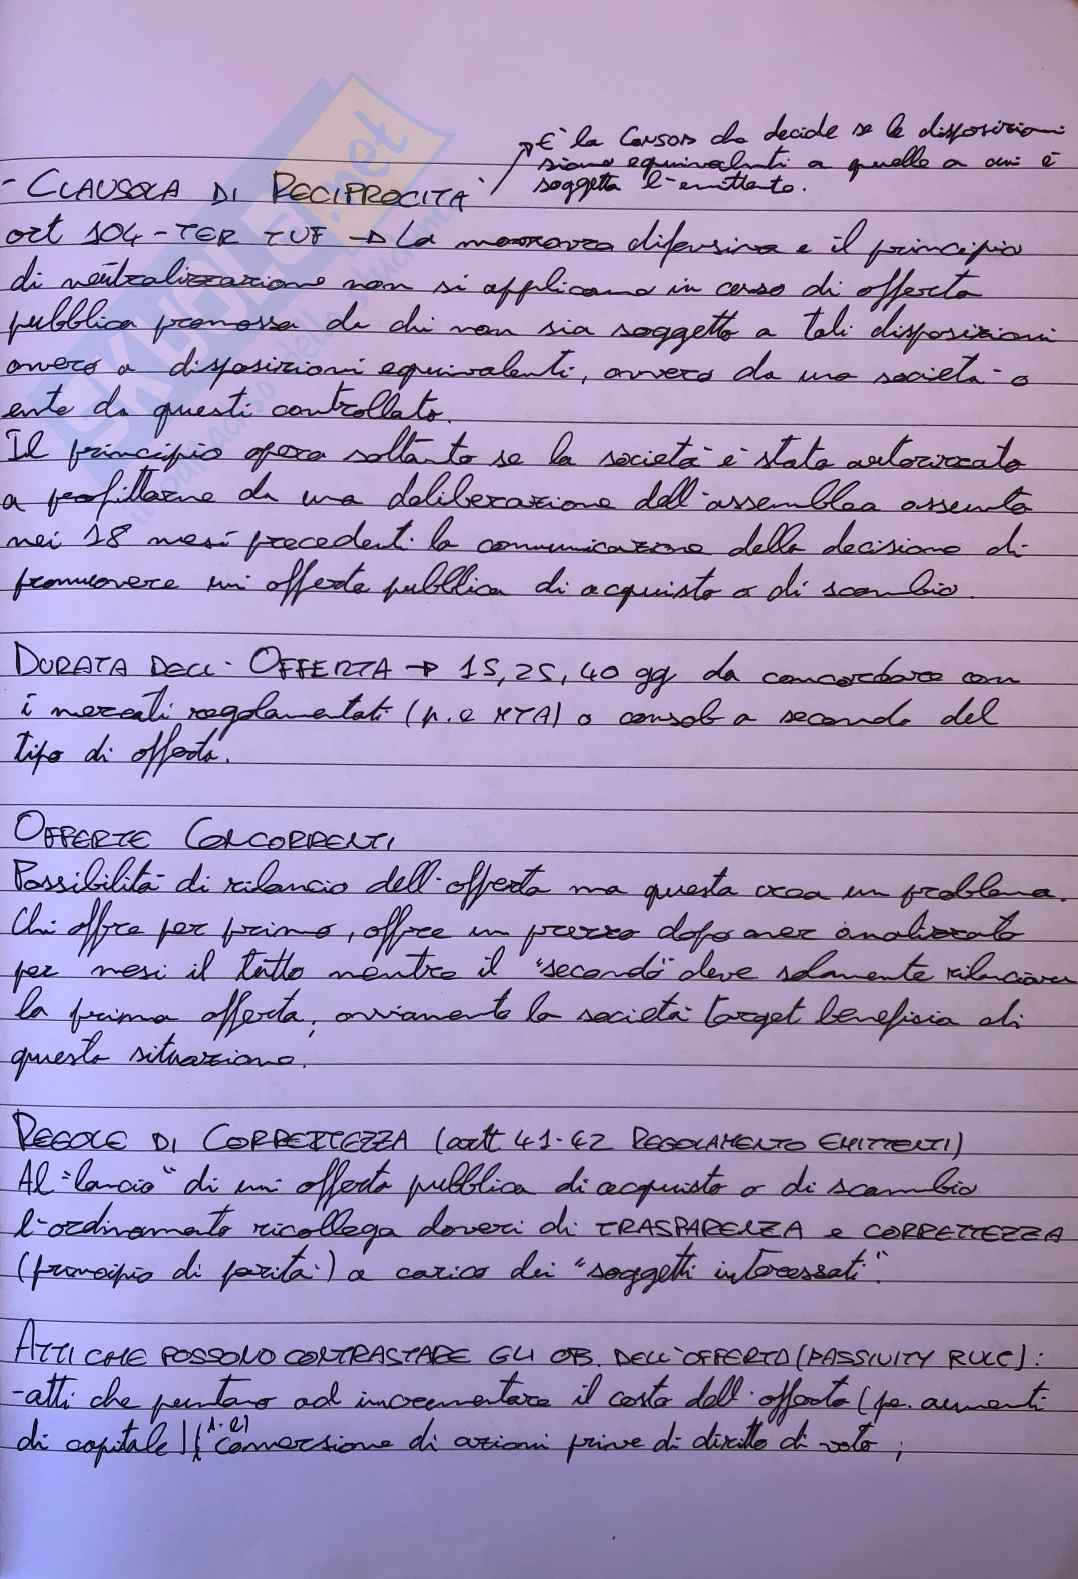 È la Consob che decide se le disposizioni
siano equivalenti a quelle a cui è
soggetta l'emittente.
- CLAUSOLA DI RECIPROCITÀ
art 104-TER TUF → La manovra difensiva e il principio
di neutralizzazione non si applicano in caso di offerta
pubblica promossa da chi non sia soggetto a tali disposizioni
ovvero a disposizioni equivalenti, ovvero da una società o
ente da questi controllato.
Il principio opera soltanto se la società è stata autorizzata
a profittarne da una deliberazione dell'assemblea assunta
nei 18 mesi precedenti la comunicazione della decisione di
promuovere un'offerta pubblica di acquisto o di scambio.
DURATA DELL'OFFERTA → 15, 25, 40 gg da concordare con
i mercati regolamentati (p.e MTA) o consob a seconda del
tipo di offerta.
OFFERTE CONCORRENTI
Possibilità di rilancio dell'offerta ma questa crea un problema.
Chi offre per primo, offre un prezzo dopo aver analizzato
per mesi il tutto mentre il "secondo" deve solamente rilanciare
la prima offerta, ovviamente la società target beneficia di
questa situazione.
REGOLE DI CORRETTEZZA (artt 41-42 REGOLAMENTO EMITTENTI)
Al "lancio" di un'offerta pubblica di acquisto o di scambio
l'ordinamento ricollega doveri di TRASPARENZA e CORRETTEZZA
(principio di parità) a carico dei "soggetti interessati".
ATTI CHE POSSONO CONTRASTARE GLI OB. DELL'OFFERTA (PASSIVITY RULE):
- atti che puntano ad incrementare il costo dell'offerta (pe. aumenti
di capitale) (p.e) conversione di azioni prive di diritto di voto;
SKUOLA.net